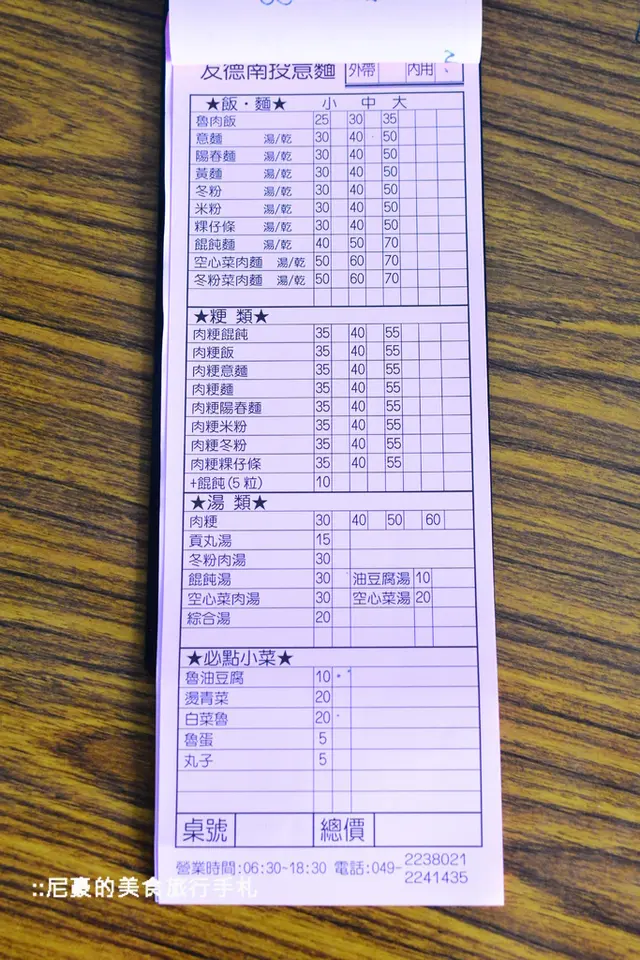 友德南投意麵 外帶 內用 2
★飯・麵★ 小 中 大
魯肉飯 25 30 35
意麵 湯/乾 30 40 50
陽春麵 湯/乾 30 40 50
黃麵 湯/乾 30 40 50
冬粉 湯/乾 30 40 50
米粉 湯/乾 30 40 50
粿仔條 湯/乾 30 40 50
餛飩麵 湯/乾 40 50 70
空心菜肉麵 湯/乾 50 60 70
冬粉菜肉麵 湯/乾 50 60 70
★粳 類★
肉粳餛飩 35 40 55
肉粳飯 35 40 55
肉粳意麵 35 40 55
肉粳麵 35 40 55
肉粳陽春麵 35 40 55
肉粳米粉 35 40 55
肉粳冬粉 35 40 55
肉粳粿仔條 35 40 55
+餛飩(5粒) 10
★湯 類★
肉粳 30 40 50 60
貢丸湯 15
冬粉肉湯 30
餛飩湯 30 油豆腐湯 10
空心菜肉湯 30 空心菜湯 20
綜合湯 20
★必點小菜★
魯油豆腐 10
燙青菜 20
白菜魯 20
魯蛋 5
丸子 5
桌號 總價
營業時間:06:30~18:30 電話:049-2238021
2241435
::尼豪的美食旅行手札